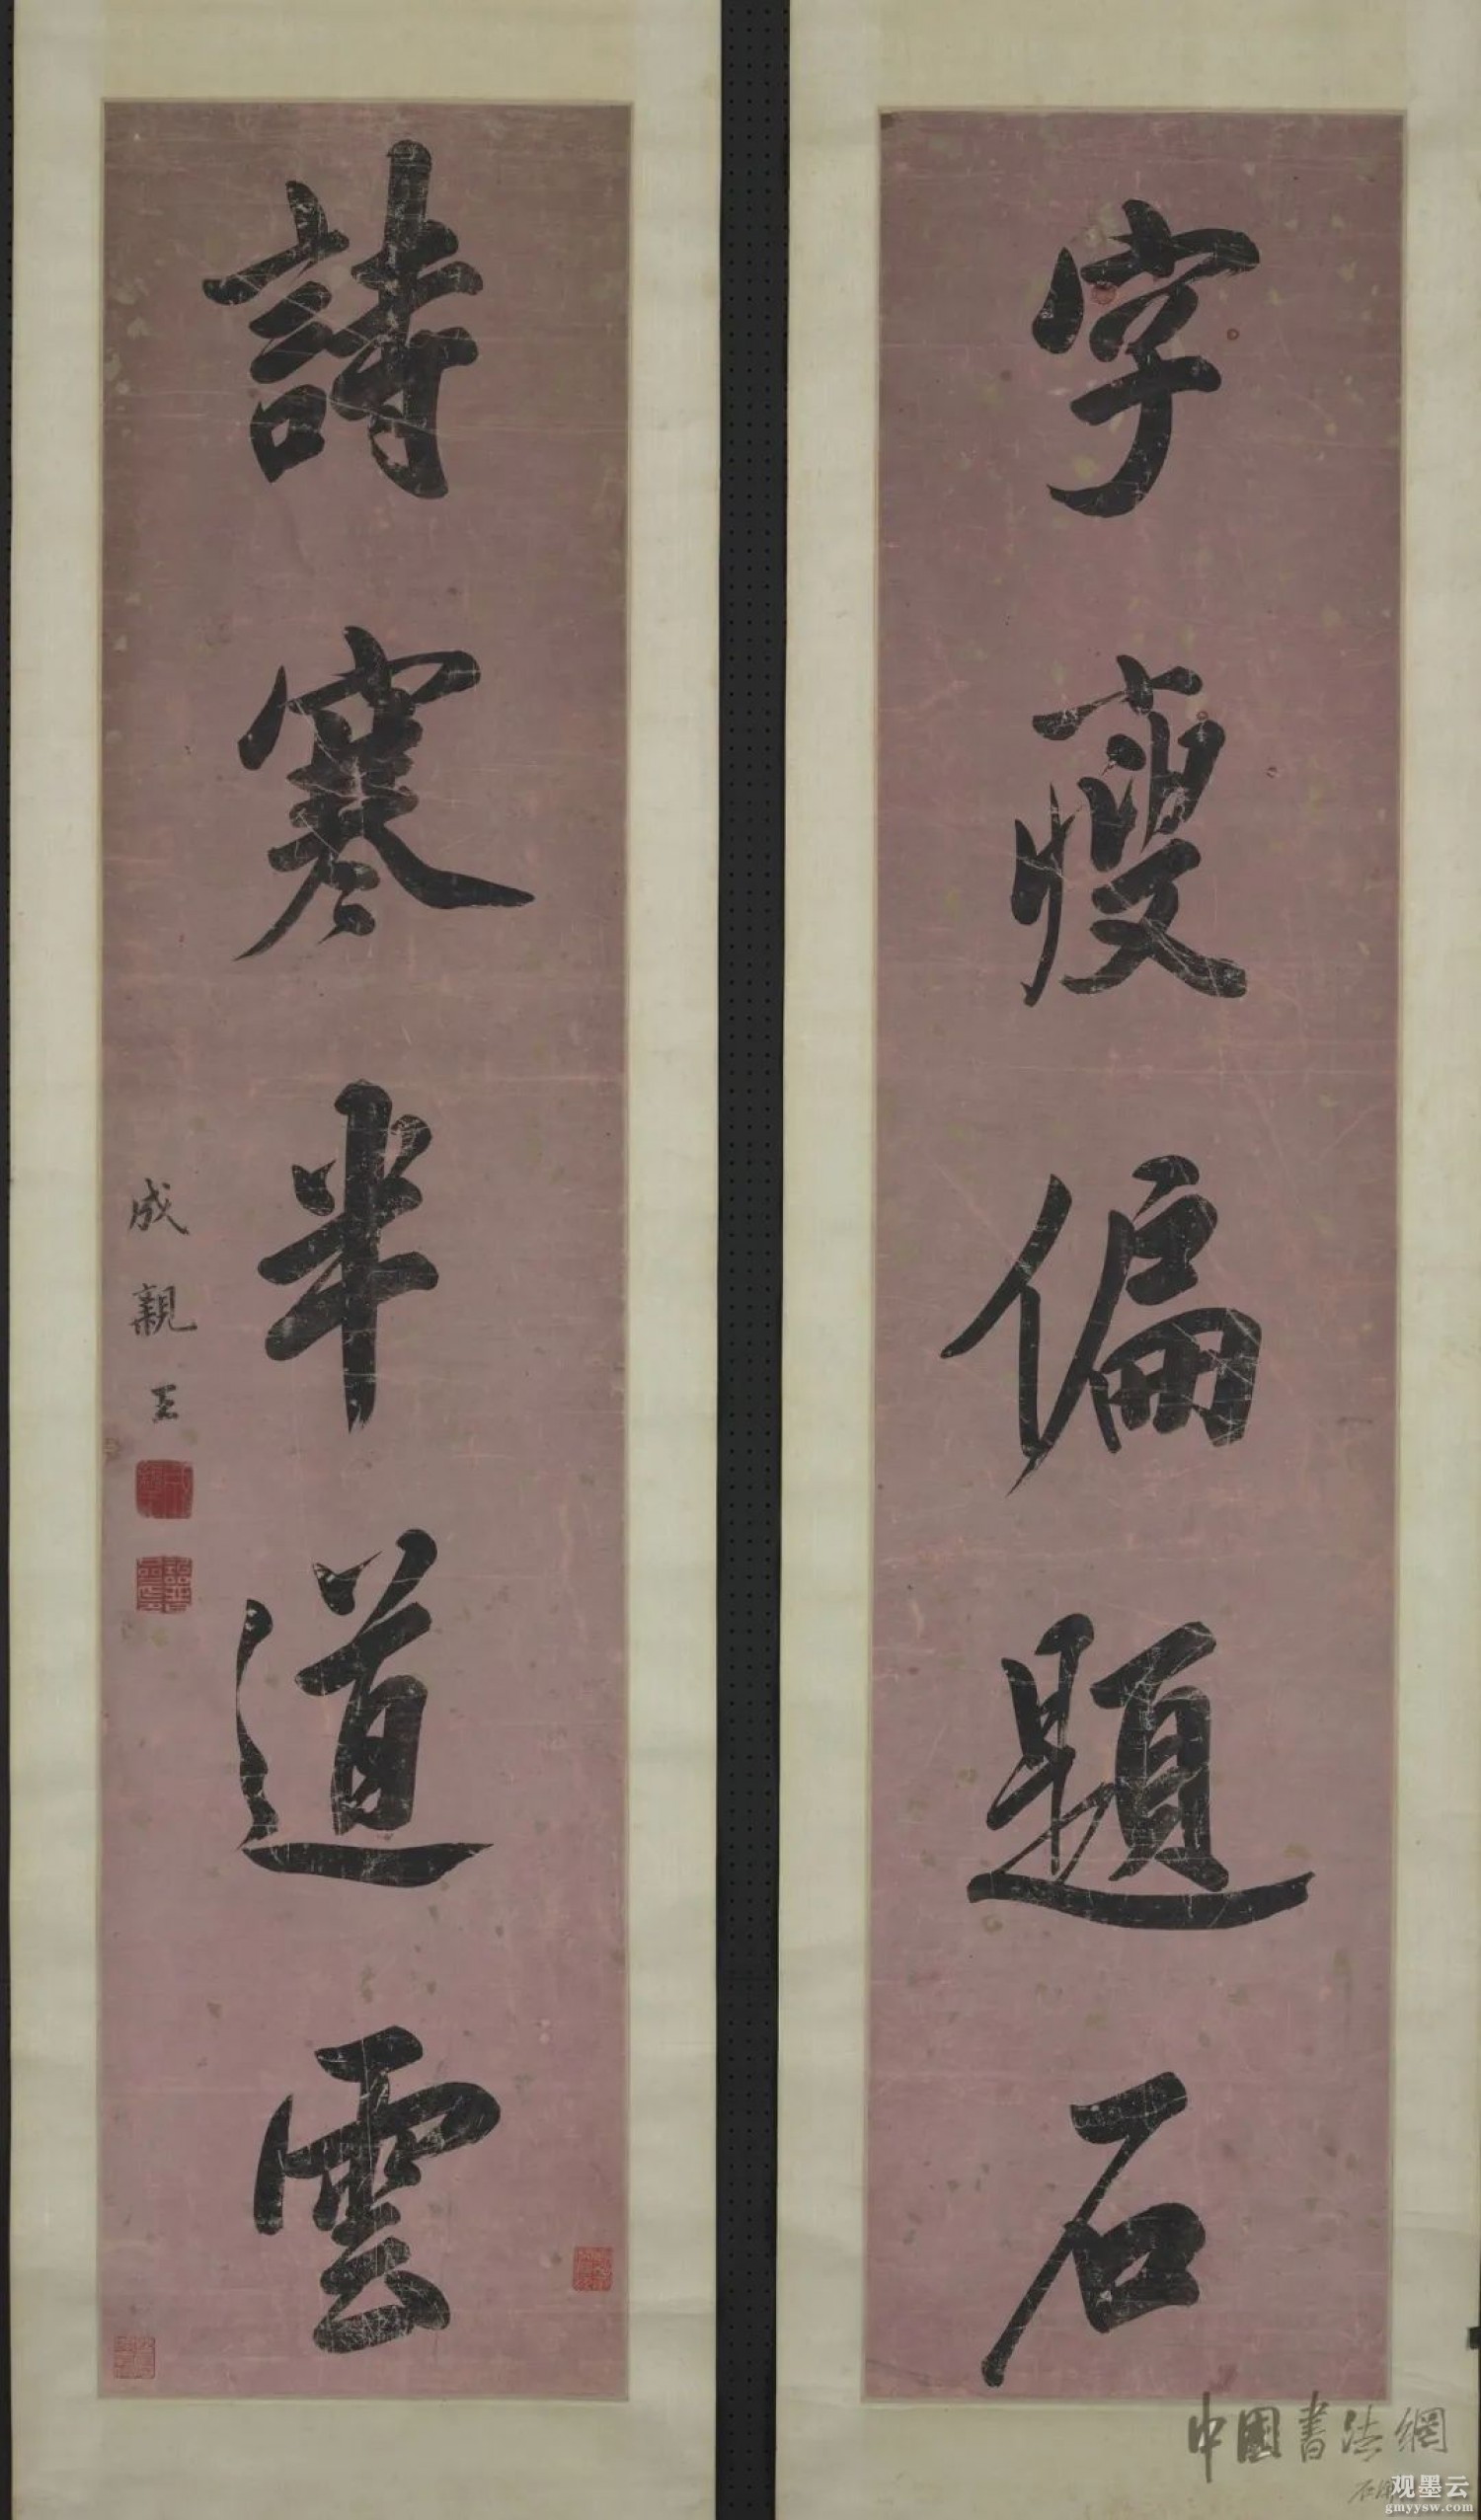 字瘦偏題石
詩寒半道雲
成親王
中國書法網
观墨云
gmyysw.com